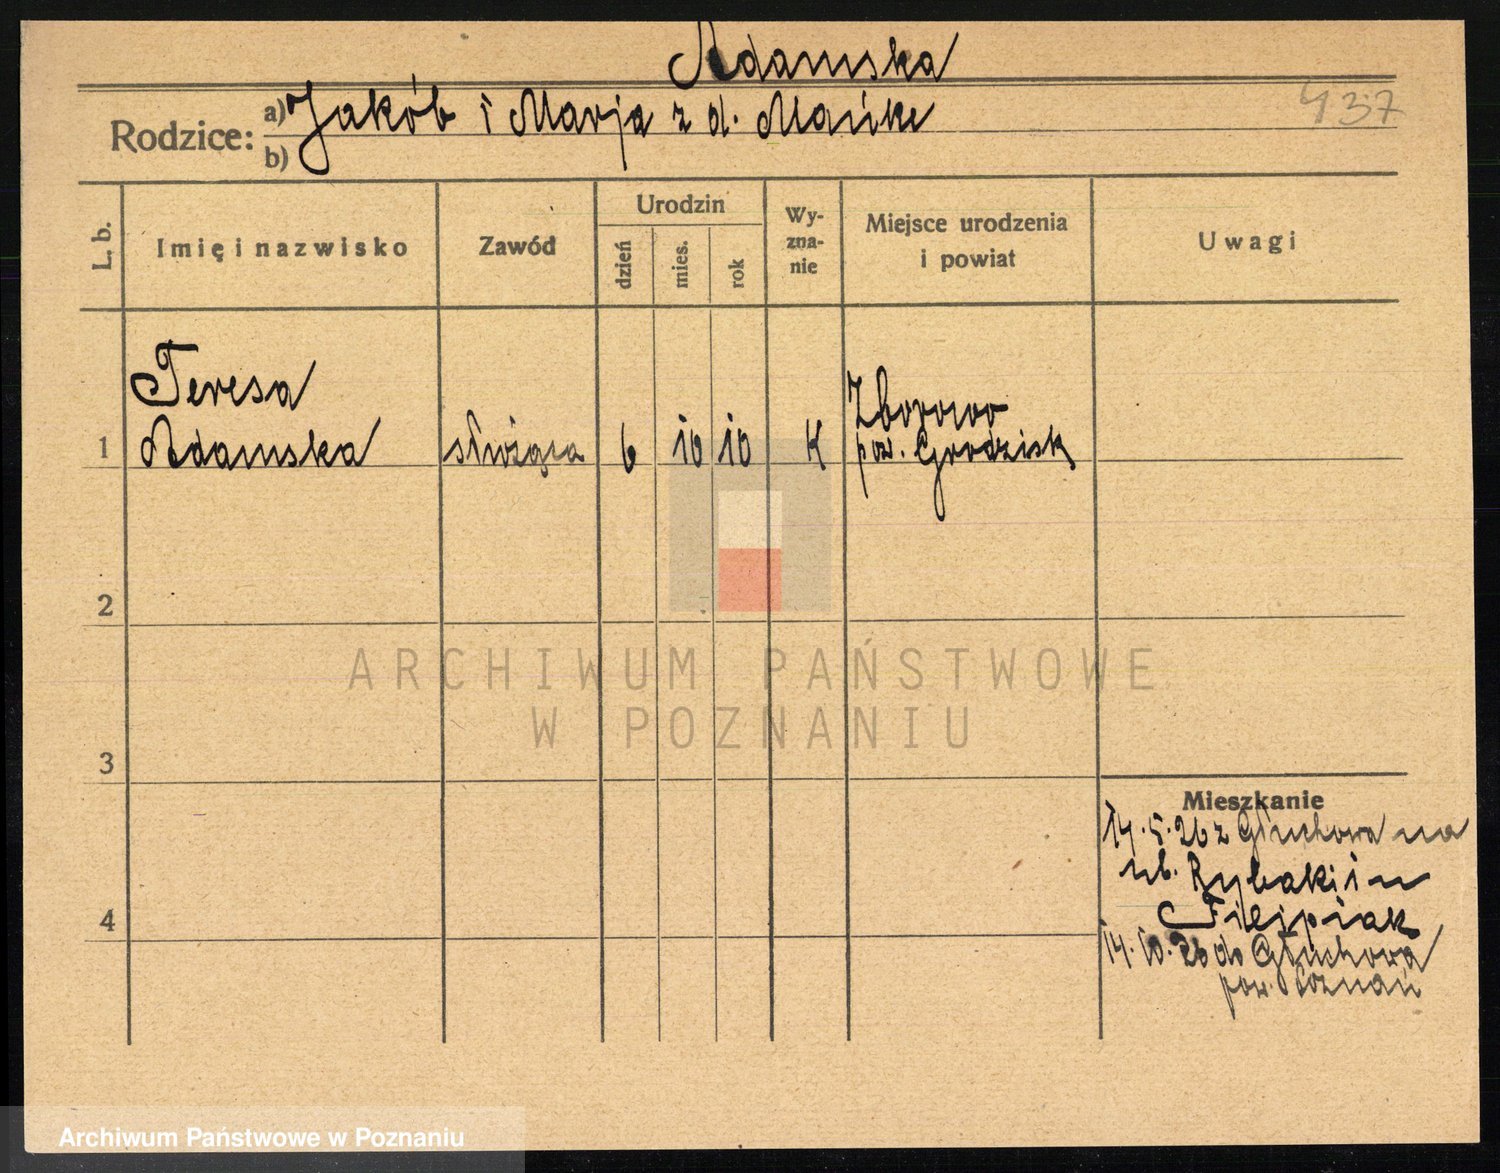 Adamska
437
Rodzice: a) Jakób i Marja z d. Mańke
b)
L. b.
Imię i nazwisko
Zawód
Urodzin
dzień
mies.
rok
Wy-
zna-
nie
Miejsce urodzenia
i powiat
Uwagi
Teresa
1 Adamska służąca 6 10 10 K Zborowo
pow. Grodzisk
2
ARCHIWUM PAŃSTWOWE
W POZNANIU
3
Mieszkanie
14.5.26 z Głuchowa na
ub. Rybaki
Filipiak
4
14.10.26 do Głuchowa
pow. Poznań
Archiwum Państwowe w Poznaniu